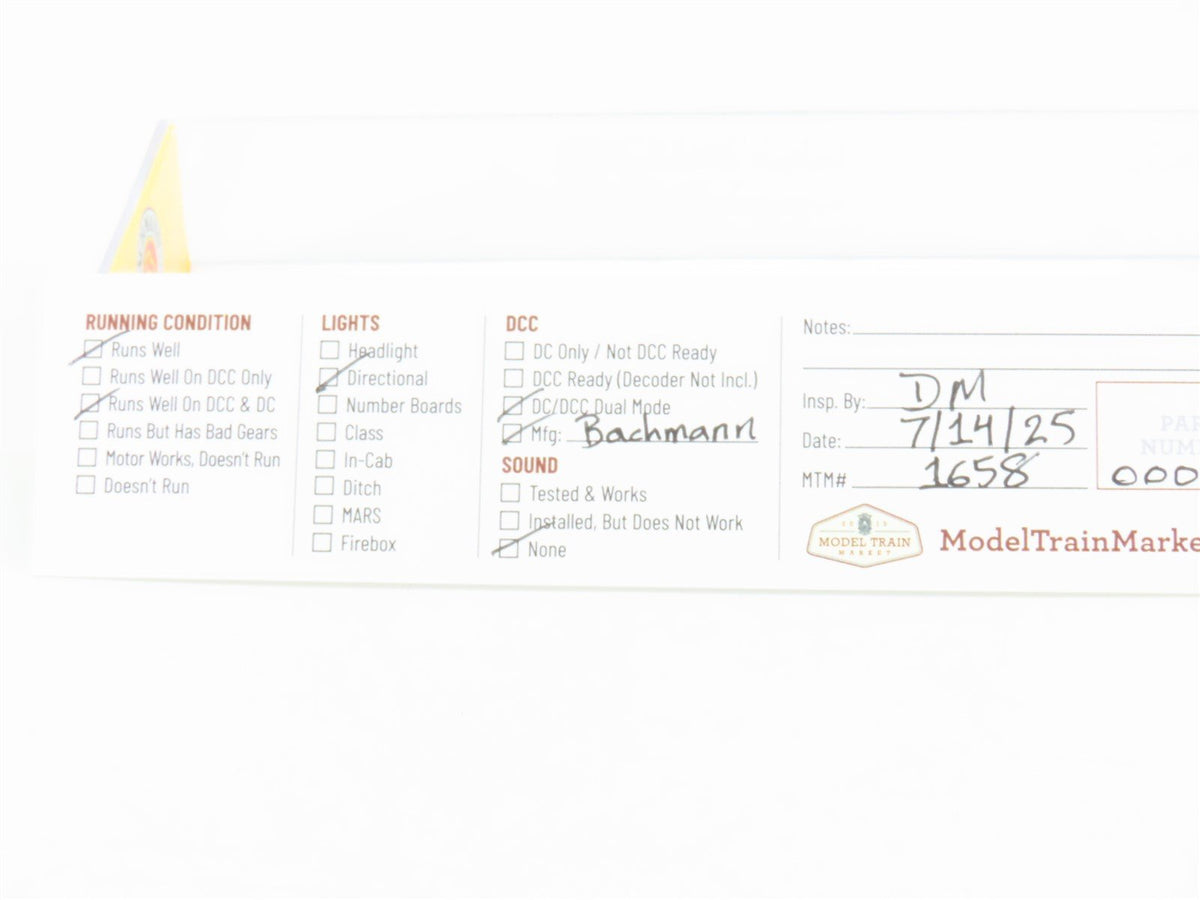 RUNNING CONDITION
Runs Well
Runs Well On DCC Only
Runs Well On DCC & DC
Runs But Has Bad Gears
Motor Works, Doesn't Run
Doesn't Run
LIGHTS
Headlight
Directional
Number Boards
Class
In-Cab
Ditch
MARS
Firebox
DCC
DC Only / Not DCC Ready
DCC Ready (Decoder Not Incl.)
DC/DCC Dual Mode
Mfg: Bachmann
SOUND
Tested & Works
Installed, But Does Not Work
None
Notes:
Insp. By: DM
Date: 7/14/25
MTM# 1658
PAR
NUM
000
MODEL TRAIN
MARKET
ModelTrainMarke